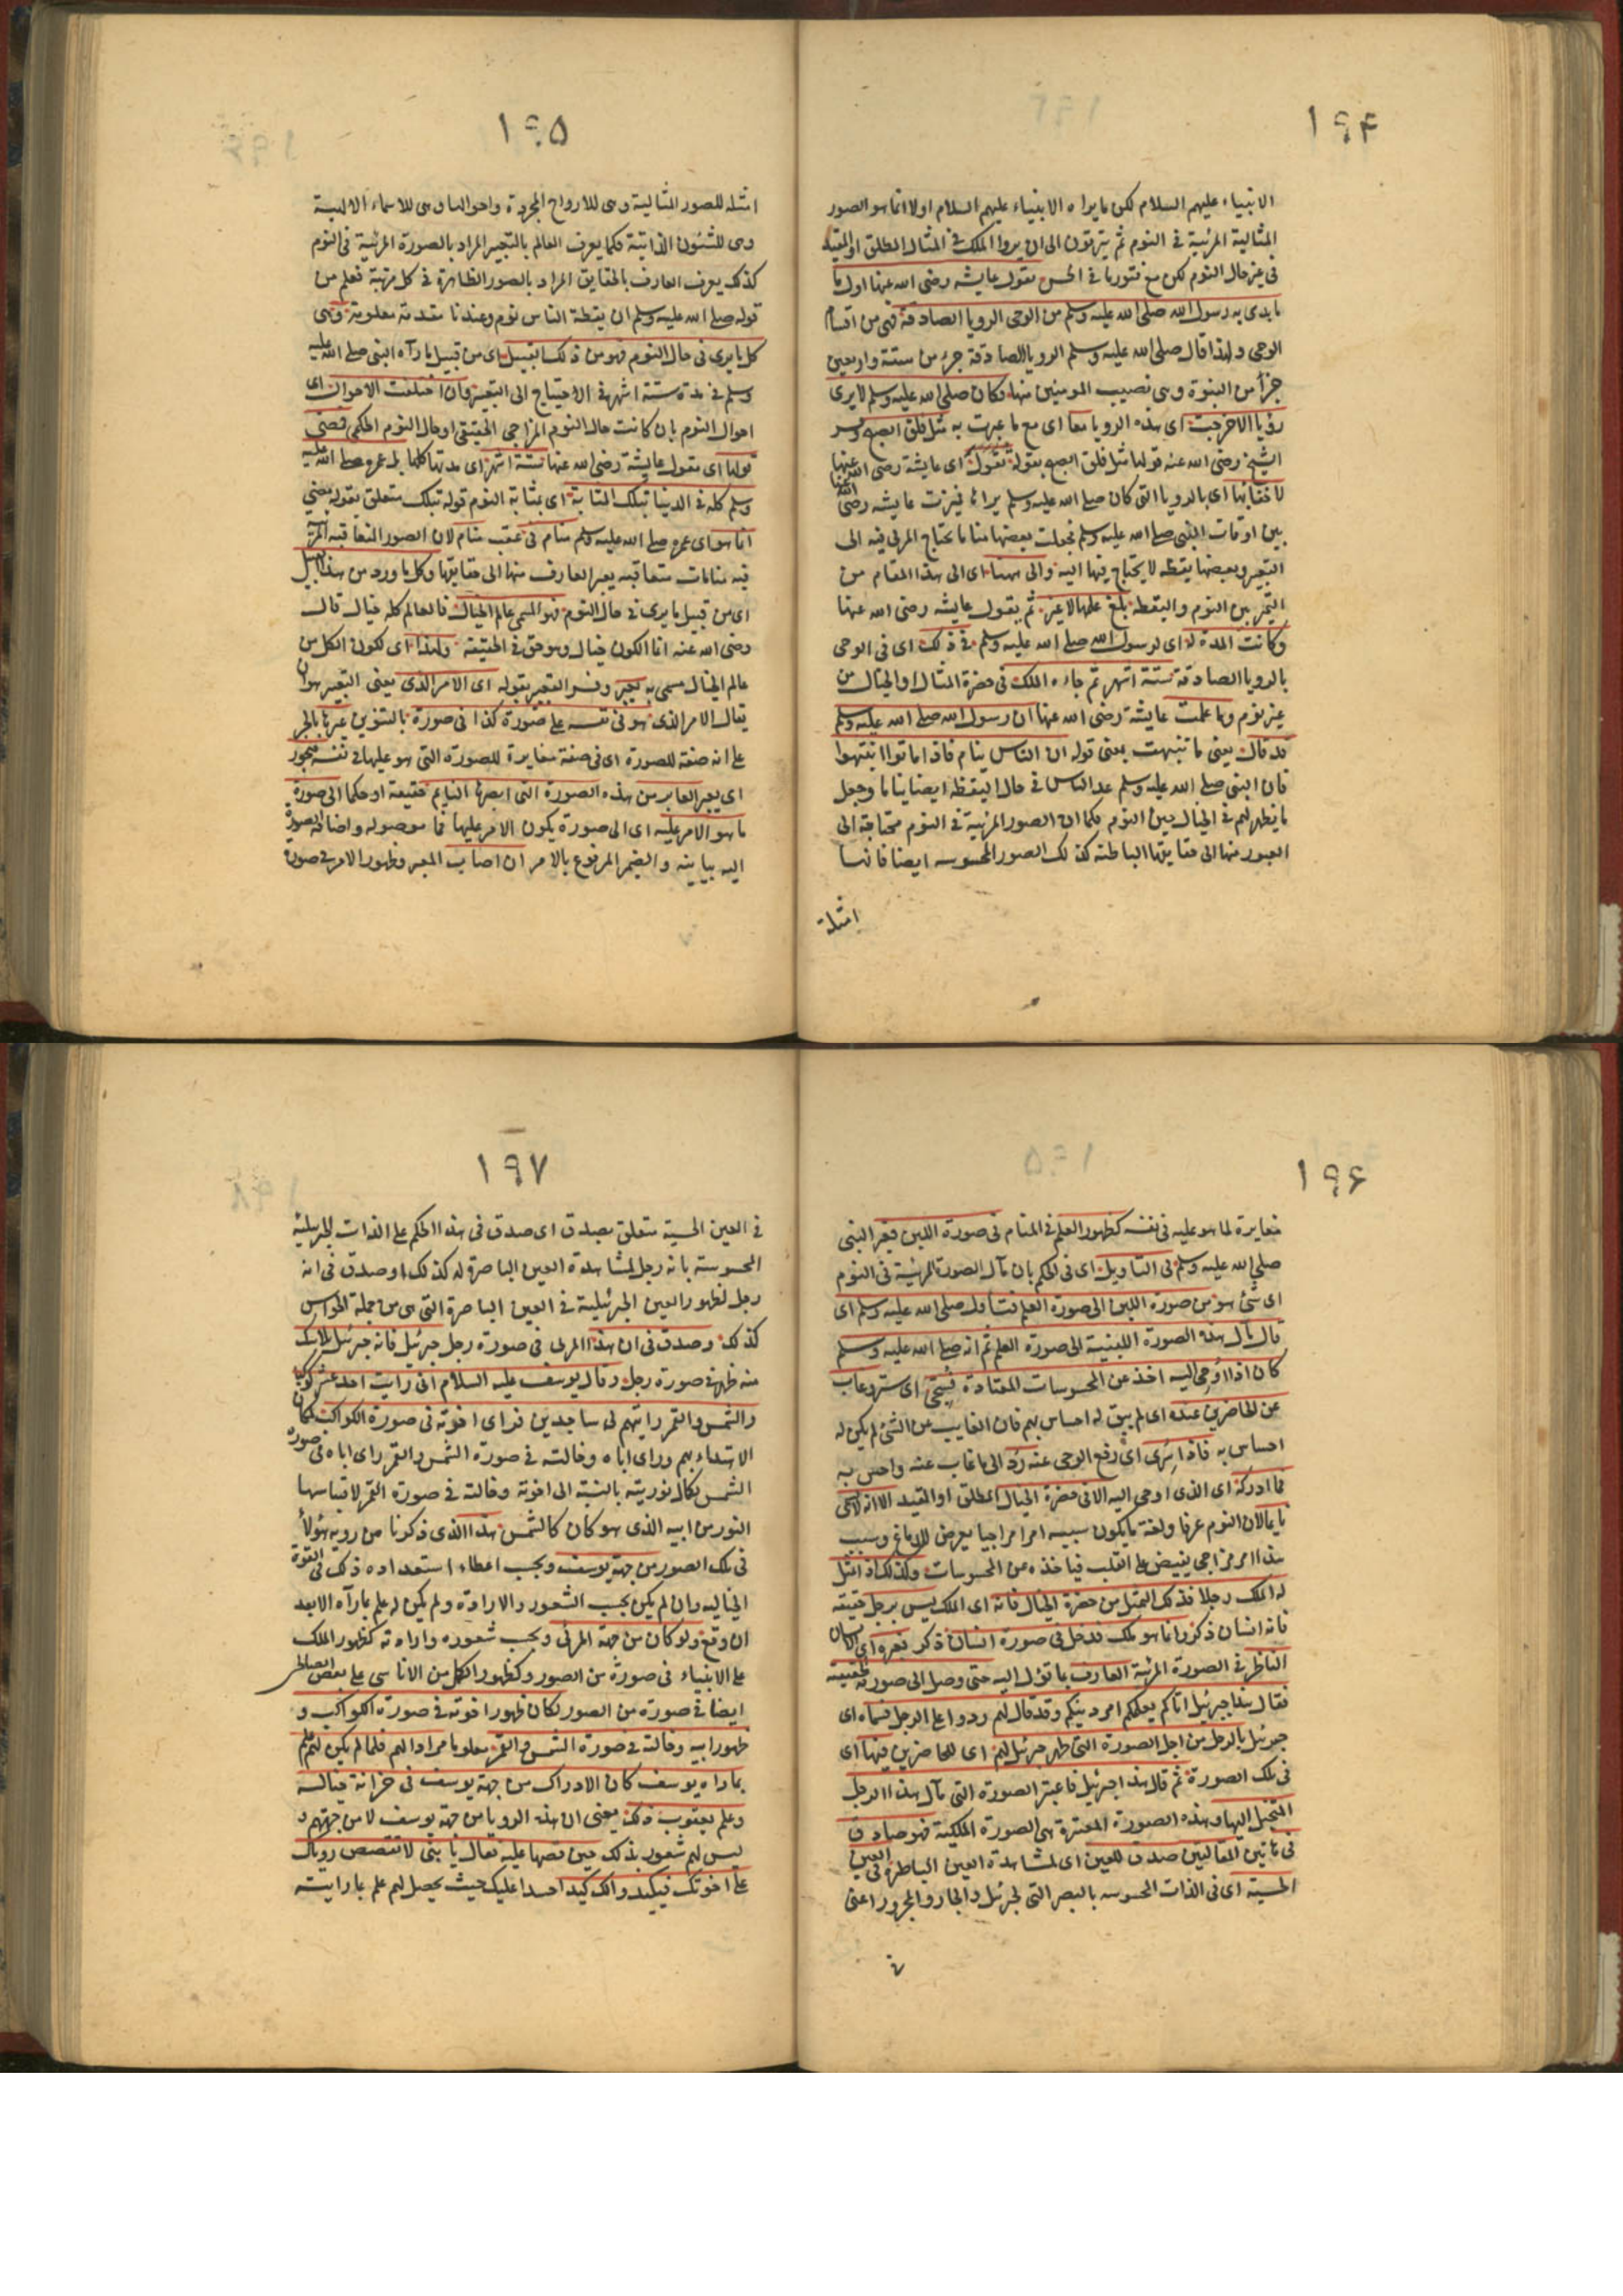 ١٩۴
الانبياء عليهم السلام لكن ما يراه الانبياء عليهم السلام اولا انما هو الصور
المثالية المرئية فى النوم ثم يترقون الى ان يروا الملك فى المثال المطلق او المقيد
فى غير حال النوم لكن مع فتور ما فى الحس تقول عايشه رضى الله عنها اول ما
ما بدى به رسول الله صلى الله عليه وسلم من الوحى الرويا الصادقة فهى من اقسام
الوحى ولهذا قال صلى الله عليه وسلم الرويا الصادقة جزء من ستة واربعين
جزأ من النبوة وهى نصيب المومنين منها فكان صلى الله عليه وسلم لا يرى
رؤيا الا خرجت اى هذه الرويا معا اى مع ما عبرت به مثل فلق الصبح وفسر
الشيخ رضى الله عنه قولها مثل فلق الصبح بقوله تقول اى عايشة رضى الله عنها
لا خفا بها اى بالرويا التى كان صلى الله عليه وسلم يراها فميزت عايشه رضى الله عنها
بين اوقات النبى صلى الله عليه وسلم فجعلت بعضها مناما يحتاج المرئى فيه الى
التعبير وبعضها يقظه لا يحتاج فيها اليه والى ههنا اى الى هذا المقام من
التميز بين النوم واليقظه بلغ علمها لا غير ثم يقول عايشه رضى الله عنها
وكانت المدة له اى لرسول الله صلى الله عليه وسلم فى ذلك اى فى الوحى
بالرويا الصادقة ستة اشهر ثم جاءه الملك فى حضرة المثال او الخيال من
غير نوم وما علمت عايشة رضى الله عنها ان رسول الله صلى الله عليه وسلم
قد قال يعنى ما تنبهت بمعنى قوله ان الناس ينام فاذا ماتوا انتبهوا
فان النبى صلى الله عليه وسلم عد الناس فى حال اليقظه ايضا نياما وجعل
ما يظهر لهم فى الخيال بين النوم فكما ان الصور المرئية فى النوم محتاجة الى
العبور منها الى حقايقها الباطنه كذلك الصور المحسوسه ايضا فانها
امثلة
١٩۵
امثله للصور المثالية وهى للارواح المجردة واحوالها وهى للاسماء الالهية
وهى للشئون الذاتية فكما يعرف العالم بالتعبير المراد بالصورة المرئية فى النوم
كذلك يعرف العارف بالحقايق المراد بالصور الظاهرة فى كل مرتبة فعلم من
قوله صلى الله عليه وسلم ان يقظة الناس نوم وعندنا مقدمة معلومة وهى
كل ما يرى فى حال النوم فهو من ذلك القبيل اى من قبيل ما رآه النبى صلى الله عليه
وسلم فى مدة ستة اشهر فى الاحتياج الى التعبير وان اختلفت الاحوال اى
احوال النوم بان كانت حال النوم المزاجى الحقيقى او حال النوم الحكمى فمضى
قولها اى مقول عايشة رضى الله عنها ستة اشهر اى مدتها كلها بل عمره صلى الله عليه
وسلم كله فى الدنيا بتلك المثابة اى بمثابة النوم قوله بتلك متعلق بقوله مضى
انما هو اى عمره صلى الله عليه وسلم منام فى عقب منام لان الصور المتعاقبه المرئية
فيه منامات متعاقبه يعبر العارف منها الى حقايقها وكل ما ورد من هذا القبيل
اى من قبيل ما يرى فى حال النوم فهو المسمى عالم الخيال فالعالم كله خيال قال
رضى الله عنه انما الكون خيال وهو حق فى الحقيقة ولهذا اى لكون الكل من
عالم الخيال مسمى به يعبر وفسر التعبير بقوله اى الامر الذى يعنى التعبير هو ان
يقال الامر الذى هو فى نفسه على صورة كذا فى صورة بالتنوين غيرها بالجر
على انه صفة للصورة اى فى صفة مغايرة للصورة التى هو عليها فى نفسه فيجوز
اى يعبر العابر من هذه الصورة التى ابصرها النايم حقيقة او حكما الى صورة
ما هو الامر عليه اى الى صورة يكون الامر عليها فما موصوله واضافة الصورة
اليه بيانية والضمير المرفوع بالامر ان اصاب المعبر وظهور الامر فى صورة
١٩۶
مغايرة لما هو عليه فى نفسه كظهور العلم فى المنام فى صورة اللبن فعبر النبى
صلى الله عليه وسلم فى التاويل اى فى الحكم بان مآل الصورة المرئية فى النوم
اى شئ هو من صورة اللبن الى صورة العلم فتاول صلى الله عليه وسلم اى
قال مآل هذه الصورة اللبنية الى صورة العلم ثم انه صلى الله عليه وسلم
كان اذا اوحى اليه اخذ عن المحسوسات المعتادة فسجى اى ستر وغاب
عن الحاضرين عنده اى لم يبق له احساس بهم فان الغايب عن الشئ لم يكن له
احساس به فاذا سرى اى رفع الوحى عنه رد الى ما غاب عنه واحس به
فما ادركه اى الذى اوحى اليه الا فى حضرة الخيال المطلق او المقيد الا انه لا يسمى
نايما لان النوم عرفا ولغة ما يكون سببه امرا مزاجيا يعرض للدماغ وسبب
هذا امر مزاجى يفيض على القلب فياخذه عن المحسوسات وكذلك اذا تمثل
له الملك رجلا فذلك التمثل من حضرة الخيال فانه اى الملك ليس برجل حقيقة
فانه انسان ذكر وانما هو ملك فدخل فى صورة انسان ذكر فعبره اى الانسان
الناظر فى الصورة المرئية العارف بما تؤل اليه حتى وصل الى صورته الحقيقية
فقال هذا جبرئيل اتاكم يعلمكم امر دينكم وقد قال لهم ردوا على الرجل فسماه اى
جبرئيل بالرجل من اجل الصورة التى ظهر جبرئيل لهم اى للحاضرين فيها اى
فى تلك الصورة ثم قال هذا جبرئيل فاعتبر الصورة التى مآل هذا الرجل
المتخيل اليها وهذه الصورة المعتبرة هى الصورة الملكية فهو صادق
فى هاتين المقالتين صدق للعين اى لمشاهدة العين الباطرة فى العين
الحسية اى فى الذات المحسوسه بالبصر التى لجبرئيل والجار والمجرور اعنى
فى
١٩٧
فى العين الحسية متعلق بصدق اى صدق فى هذا الحكم على الذات الجبرئيلية
المحسوسة بانه رجل لمشاهدة العين الباصرة له كذلك او صدق فى انه
رجل لظهور العين الجبرئيلية فى العين الباصرة التى هى من جملة الحواس
كذلك وصدق فى ان هذا المرئى فى صورة رجل جبرئيل فانه جبرئيل بلا شك
منه ظهر فى صورة رجل وقال يوسف عليه السلام انى رايت احد عشر كوكبا
والشمس والقمر رايتهم لى ساجدين فراى اخوته فى صورة الكواكب لمكان
الاهتداء بهم وراى اباه وخالته فى صورة الشمس والقمر راى اباه فى صورة
الشمس لكمال نوريته بالنسبة الى اخوته وخالته فى صورة القمر لاقتباسها
النور من ابيه الذى هو كان كالشمس هذا الذى ذكرنا من روية هؤلاء
فى تلك الصور من جهة يوسف وبحسب اعطاء استعداده ذلك فى القوة
الخياليه وان لم يكن بحسب الشعور والارادة ولم يكن له علم بما رآه الا بعد
ان وقع ولو كان من جهة المرئى وبحسب شعوره وارادته كظهور الملك
على الانبياء فى صورة من الصور وكظهور الكمل من الاناسى على بعض الصاطر
ايضا فى صورة من الصور لكان ظهور اخوته فى صورة الكواكب و
ظهور ابيه وخالته فى صورة الشمس والقمر معلوما مرادا لهم فلما لم يكن لهم علم
بما راه يوسف كان الادراك من جهة يوسف فى خزانة خياله
وعلم يعقوب ذلك يعنى ان هذه الرويا من جهة يوسف لا من جهتهم و
ليس لهم شعور بذلك حين قصها عليه فقال يا بنى لا تقصص روياك
على اخوتك فيكيدوا لك كيدا حسدا عليك حيث يحصل لهم علم بما رايته